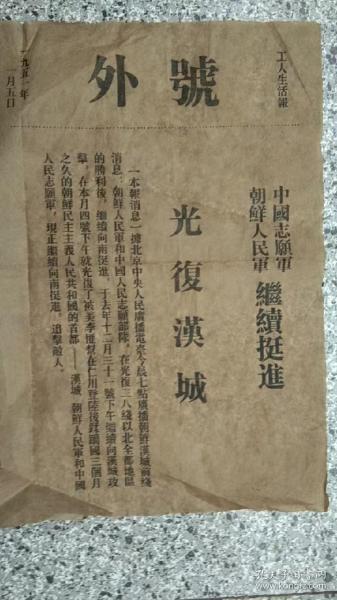 工人生活報
號外
一九五一年
一月五日
中國志願軍
朝鮮人民軍
繼續挺進
光復漢城
一本報消息一據北京中央人民廣播電臺今晨七點廣播朝鮮漢城前綫
消息：朝鮮人民軍和中國人民志願部隊，在光復三八綫以北全部地區
的勝利後，繼續向南挺進，于去年十二月三十一號下午繼續向漢城攻
擊，在本月四號下午就光復了被美李匪幫在仁川登陸後蹂躪國三個月
之久的朝鮮民主主義人民共和國的首都——漢城，朝鮮人民軍和中國
人民志願軍，現正繼續向南挺進，追擊敵人。